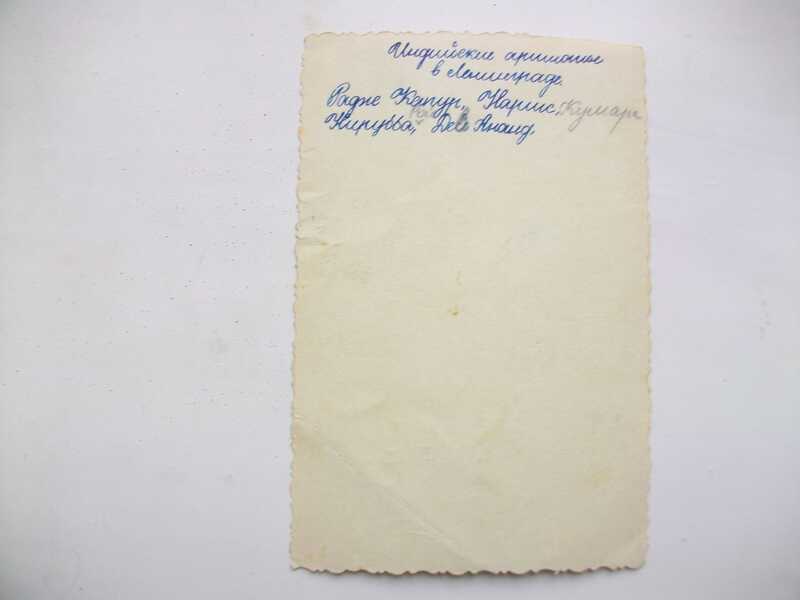 Индийские артисты
в Ленинграде.
Радж Капур, Наргис, Кумари
Нирубба, Рой, Дев Ананд,